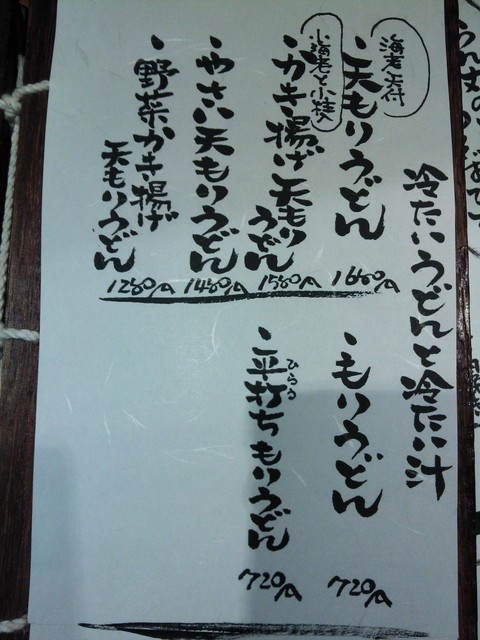 冷たいうどんと冷たい汁
海老天付
・天もりうどん
1680円
小海老と小柱入
・かき揚げ天もりうどん
1580円
・やさい天もりうどん
1480円
・野菜かき揚げ
天もりうどん
1280円
・もりうどん
720円
・平打ちもりうどん
ひらう
720円